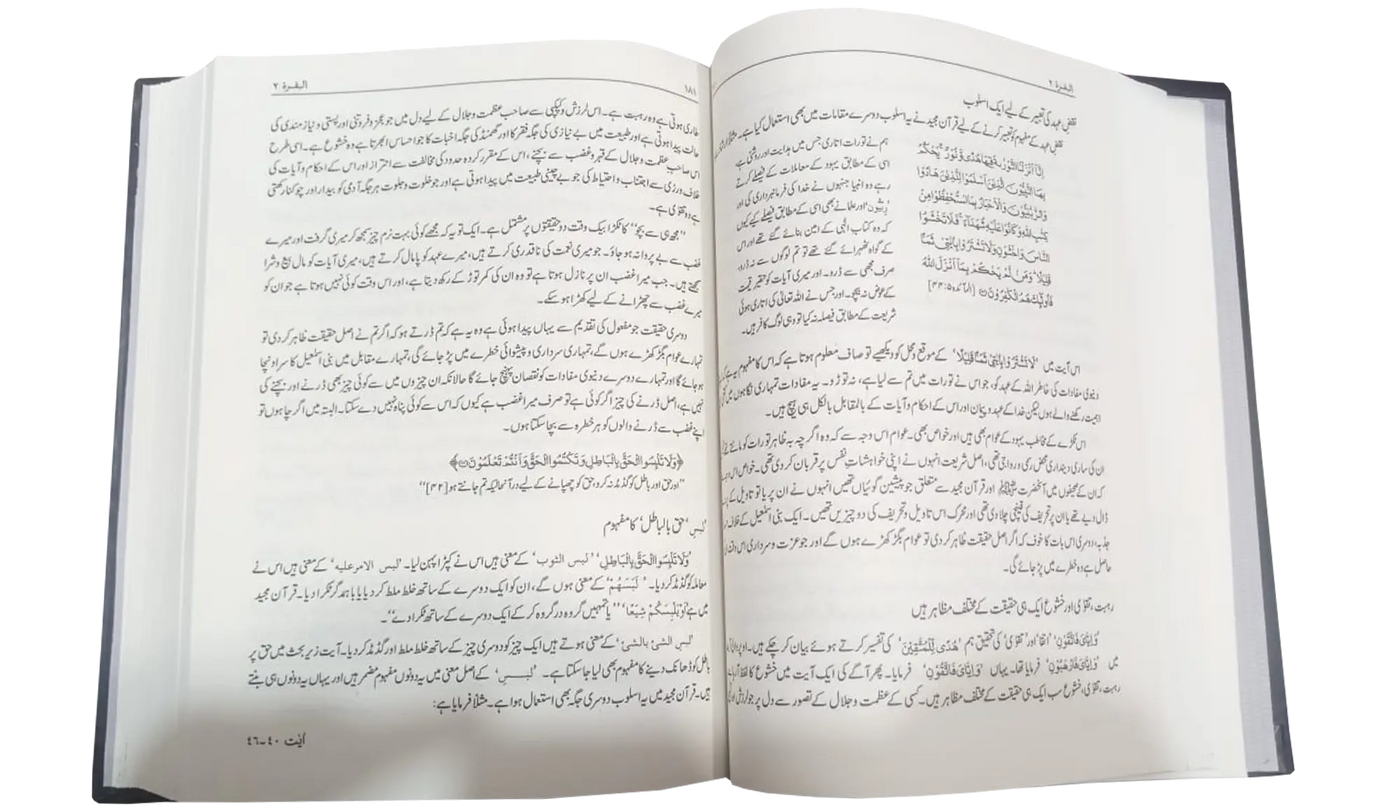 البقرۃ ۲
نقضِ عہد کی تعبیر کے لیے ایک اسلوب
نقضِ عہد کے مفہوم کو تعبیر کرنے کے لیے قرآن مجید نے یہ اسلوب دوسرے مقامات میں بھی استعمال کیا ہے۔ مثلاً
اِنَّاۤ اَنْزَلْنَا التَّوْرٰىةَ فِيْهَا هُدًى وَّ نُوْرٌ ۚ يَحْكُمُ
بِهَا النَّبِيُّوْنَ الَّذِيْنَ اَسْلَمُوْا لِلَّذِيْنَ هَادُوْا
وَ الرَّبّٰنِيُّوْنَ وَ الْاَحْبَارُ بِمَا اسْتُحْفِظُوْا مِنْ
كِتٰبِ اللّٰهِ وَ كَانُوْا عَلَيْهِ شُهَدَآءَ ۚ فَلَا تَخْشَوُا
النَّاسَ وَ اخْشَوْنِ وَ لَا تَشْتَرُوْا بِاٰيٰتِيْ ثَمَنًا
قَلِيْلًا ؕ وَ مَنْ لَّمْ يَحْكُمْ بِمَاۤ اَنْزَلَ اللّٰهُ
فَاُولٰٓئِكَ هُمُ الْكٰفِرُوْنَ [المائدہ ۵:۴۴]
ہم نے تورات اتاری جس میں ہدایت اور روشنی ہے
اسی کے مطابق یہود کے معاملات کے فیصلے کرتے
رہے وہ انبیا جنہوں نے خدا کی فرمانبرداری کی اور
'ربّیون' اور علما نے بھی اسی کے مطابق فیصلے کیے کیوں
کہ وہ کتاب الٰہی کے امین بنائے گئے تھے اور اس
کے گواہ ٹھہرائے گئے تھے تو تم لوگوں سے نہ ڈرو،
صرف مجھی سے ڈرو۔ اور میری آیات کو حقیر قیمت
کے عوض نہ بیچو۔ اور جس نے اللہ تعالیٰ کی اتاری ہوئی
شریعت کے مطابق فیصلہ نہ کیا تو وہی لوگ کافر ہیں۔
اس آیت میں 'لَا تَشْتَرُوْا بِاٰيٰتِيْ ثَمَنًا قَلِيْلًا' کے موقع و محل کو دیکھیے تو صاف معلوم ہوتا ہے کہ اس کا مفہوم یہ ہے کہ
دنیوی مفادات کی خاطر اللہ کے عہد کو، جو اس نے تورات میں تم سے لیا ہے، نہ توڑو۔ یہ مفادات تمہاری نگاہوں میں
اہمیت رکھنے والے ہوں لیکن خدا کے عہد و پیمان اور اس کے احکام و آیات کے بالمقابل بالکل ہی ہیچ ہیں۔
اس ٹکڑے کے مخاطب یہود کے عوام بھی ہیں اور خواص بھی۔ عوام اس وجہ سے کہ وہ اگر چہ بہ ظاہر تورات کو مانتے
ان کی ساری دینداری محض رسمی و رواجی تھی، اصل شریعت انہوں نے اپنی خواہشاتِ نفس پر قربان کر دی تھی۔ خواص اس
کہ ان کے صحیفوں میں آنحضرت ﷺ اور قرآن مجید سے متعلق جو پیشین گوئیاں تھیں انہوں نے ان پر یا تو تاویل کے
ڈال دیے تھے یا ان پر تحریف کی قینچی چلا دی تھی اور محرک اس تاویل و تحریف کی دو چیزیں تھیں۔ ایک بنی اسمٰعیل کے خلاف
جذبہ، دوسری اس بات کا خوف کہ اگر اصل حقیقت ظاہر کر دی تو عوام بگڑ کھڑے ہوں گے اور جو عزت و سرداری اس وقت
حاصل ہے وہ خطرے میں پڑ جائے گی۔
رہبت، تقویٰ اور خشوع ایک ہی حقیقت کے مختلف مظاہر ہیں
'وَ اِيَّايَ فَاتَّقُوْنِ' اتقا اور 'تقویٰ' کی تحقیق ہم 'هُدًى لِّلْمُتَّقِيْنَ' کی تفسیر کرتے ہوئے بیان کر چکے ہیں۔ اوپر
میں 'وَ اِيَّايَ فَارْهَبُوْنِ' فرمایا تھا۔ یہاں 'وَ اِيَّايَ فَاتَّقُوْنِ' فرمایا۔ پھر آگے کی ایک آیت میں خشوع کا لفظ
رہبت، تقویٰ، خشوع سب ایک ہی حقیقت کے مختلف مظاہر ہیں۔ کسی کے عظمت و جلال کے تصور سے دل پر جو لرزش
۱۸۱
البقرۃ ۲
طاری ہوتی ہے وہ رہبت ہے۔ اس لرزش و کپکپی سے صاحب عظمت و جلال کے لیے دل میں جو عجز و فروتنی اور پستی و نیاز مندی کی
حالت پیدا ہوتی ہے اور طبیعت میں بے نیازی کی جگہ فقر کا اور گھمنڈ کی جگہ اخبات کا جو احساس ابھرتا ہے وہ خشوع ہے۔ اسی طرح
اس صاحب عظمت و جلال کے قہر و غضب سے بچنے، اس کے مقرر کردہ حدود کی مخالفت سے احتراز اور اس کے احکام و آیات کی
خلاف ورزی سے اجتناب و احتیاط کی جو بے چینی طبیعت میں پیدا ہوتی ہے اور جو خلوت و جلوت ہر جگہ آدمی کو بیدار اور چوکنا رکھتی
ہے وہ تقویٰ ہے۔
''مجھ ہی سے بچو'' کا ٹکڑا بیک وقت دو حقیقتوں پر مشتمل ہے۔ ایک تو یہ کہ مجھے کوئی بہت نرم چیز سمجھ کر میری گرفت اور میرے
غضب سے بے پروا نہ ہو جاؤ۔ جو میری نعمت کی ناقدری کرتے ہیں، میرے عہد کو پامال کرتے ہیں، میری آیات کو مال بیع و شرا
سمجھتے ہیں۔ جب میرا غضب ان پر نازل ہوتا ہے تو وہ ان کی کمر توڑ کے رکھ دیتا ہے، اور اس وقت کوئی نہیں ہوتا ہے جو ان کو
میرے غضب سے چھڑانے کے لیے کھڑا ہو سکے۔
دوسری حقیقت جو مفعول کی تقدیم سے یہاں پیدا ہوئی ہے وہ یہ ہے کہ تم ڈرتے ہو کہ اگر تم نے اصل حقیقت ظاہر کر دی تو
تمہارے عوام بگڑ کھڑے ہوں گے، تمہاری سرداری و پیشوائی خطرے میں پڑ جائے گی، تمہارے مقابل میں بنی اسمٰعیل کا سر اونچا
ہو جائے گا اور تمہارے دوسرے دنیوی مفادات کو نقصان پہنچ جائے گا حالانکہ ان چیزوں میں سے کوئی چیز بھی ڈرنے اور بچنے کی
نہیں ہے، اصل ڈرنے کی چیز اگر کوئی ہے تو صرف میرا غضب ہے کیوں کہ اس سے کوئی پناہ نہیں دے سکتا۔ البتہ میں اگر چاہوں تو
اپنے غضب سے ڈرنے والوں کو ہر خطرہ سے بچا سکتا ہوں۔
﴿وَلَا تَلْبِسُوا الْحَقَّ بِالْبَاطِلِ وَتَكْتُمُوا الْحَقَّ وَاَنْتُمْ تَعْلَمُوْنَ﴾
''اور حق اور باطل کو گڈمڈ نہ کرو، حق کو چھپانے کے لیے درآنحالیکہ تم جانتے ہو [۴۲]''
'لبس' حق بالباطل' کا مفہوم
'وَلَا تَلْبِسُوا الْحَقَّ بِالْبَاطِلِ' 'لبس الثوب' کے معنی ہیں اس نے کپڑا پہن لیا۔ 'لبس الامر علیہ' کے معنی ہیں اس نے
معاملہ کو گڈمڈ کر دیا۔ 'لَبَسَهُمْ' کے معنی ہوں گے، ان کو ایک دوسرے کے ساتھ خلط ملط کر دیا یا باہمدگر ٹکرا دیا۔ قرآن مجید
میں ہے 'اَوْ يَلْبِسَكُمْ شِيَعًا' ''یا تمہیں گروہ در گروہ کر کے ایک دوسرے کے ساتھ ٹکرا دے''۔
'لبس الشئ بالشئ' کے معنی ہوتے ہیں ایک چیز کو دوسری چیز کے ساتھ خلط ملط اور گڈمڈ کر دیا۔ آیت زیر بحث میں حق پر
باطل کو ڈھانک دینے کا مفہوم بھی لیا جا سکتا ہے۔ 'لبس' کے اصل معنی میں یہ دونوں مفہوم مضمر ہیں اور یہاں یہ دونوں ہی بنتے
ہیں۔ قرآن مجید میں یہ اسلوب دوسری جگہ بھی استعمال ہوا ہے۔ مثلاً فرمایا ہے:
آیت ۴۰-۴۶